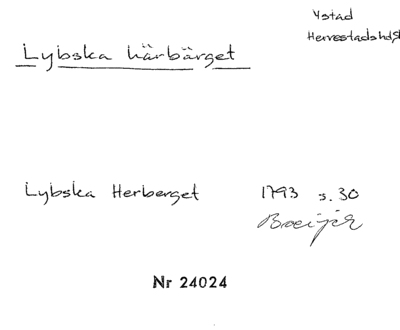 Ystad
Herrestads hd
Lybska härbärget
Lybska Herberget 1793 s. 30
Nr 24024